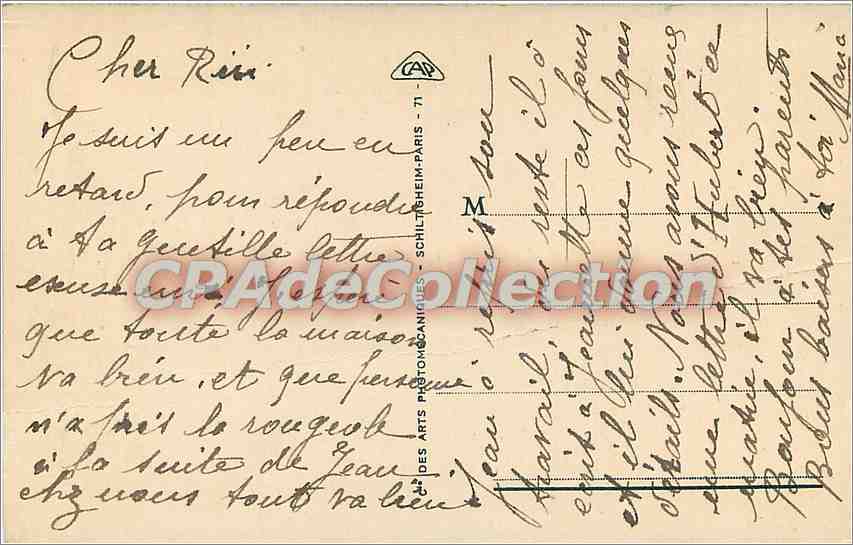 Cher Riri
Je suis un peu en
retard, pour répondre
à ta gentille lettre
excuse moi J'espère
que toute la maison
va bien, et que personne
n'a pris la rougeole
à la suite de Jean
chez nous tout va bien
Jean a repris son
travail, du reste il a
écrit à Jeannette ces jours
et il lui donne quelques
détails. Nous avons reçu
une lettre d'Hubert ce
matin, il va bien.
Bonjour à tes parents
Bons baisers à toi
CAP
Cie DES ARTS PHOTOMÉCANIQUES - SCHILTIGHEIM-PARIS - 71 -
M
CPAdeCollection